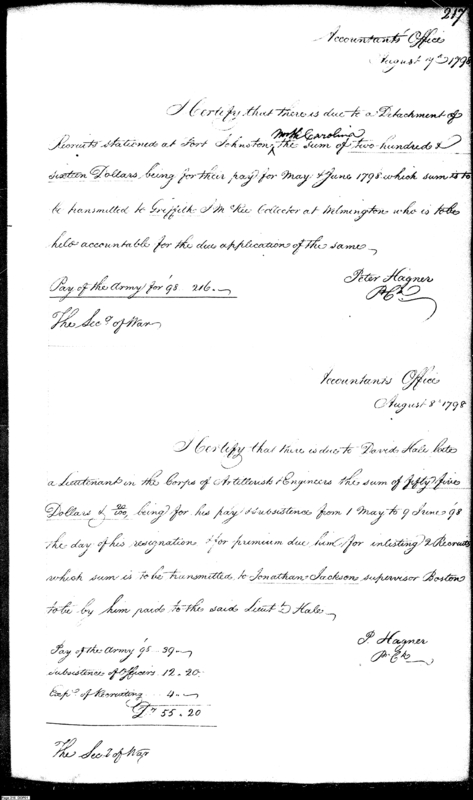 217
Accountants Office
August 7th 1798
I Certify that there is due to a Detachment of
North Carolina
Recruits stationed at Fort Johnston ^ the sum of two hundred &
sixteen Dollars, being for their pay for May & June 1798 which sum is to
be transmitted to Griffith J McRee Collector at Wilmington who is to be
held accountable for the due application of the same
Peter Hagner
P. Ck
Pay of the Army for 98 216.
The Secy of War
Accountants Office
August 8th 1798
I Certify that there is due to David Hale late
a Lieutenant in the Corps of Artillerists & Engineers the sum of fifty five
Dollars & 20/100, being for his pay & subsistence from 1 May to 9 June 98
the day of his resignation & for premium due him for inlisting 2 Recruits
which sum is to be transmitted to Jonathan Jackson supervisor Boston
to be by him paid to the said Lieut. Hale
P Hagner
P. Ck
Pay of the Army 98 39
subsistence of Officers 12.20
Exps. of Recruiting 4
Drs 55.20
The Secy of War